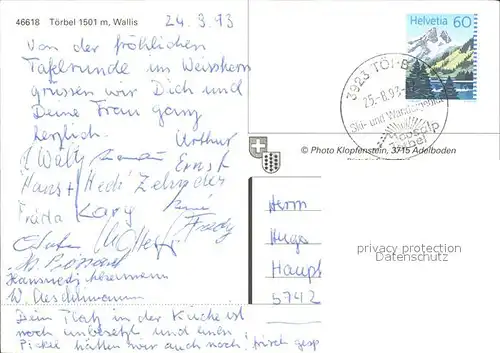 46618 Törbel 1501 m, Wallis
24.3.93
Von der fröhlichen
Tafelrunde im Weisshorn
grüssen wir Dich und
Deine Frau ganz
herzlich.
Arthur
Walty
Ernst
Hans + Hedi Zehnder
Frida Kary
René
Fredy
W. Aeschlimann
Dein Platz in der Küche ist
noch unbesetzt und einen
Pickel hätten wir auch noch! frisch gesp
Helvetia 60
3923 TÖRBEL
25.-8.93-
Ski- und Wandergebiet
Moosalp
Törbel
© Photo Klopfenstein, 3715 Adelboden
Herrn
Hugo
Haupt
5742
privacy protection
Datenschutz